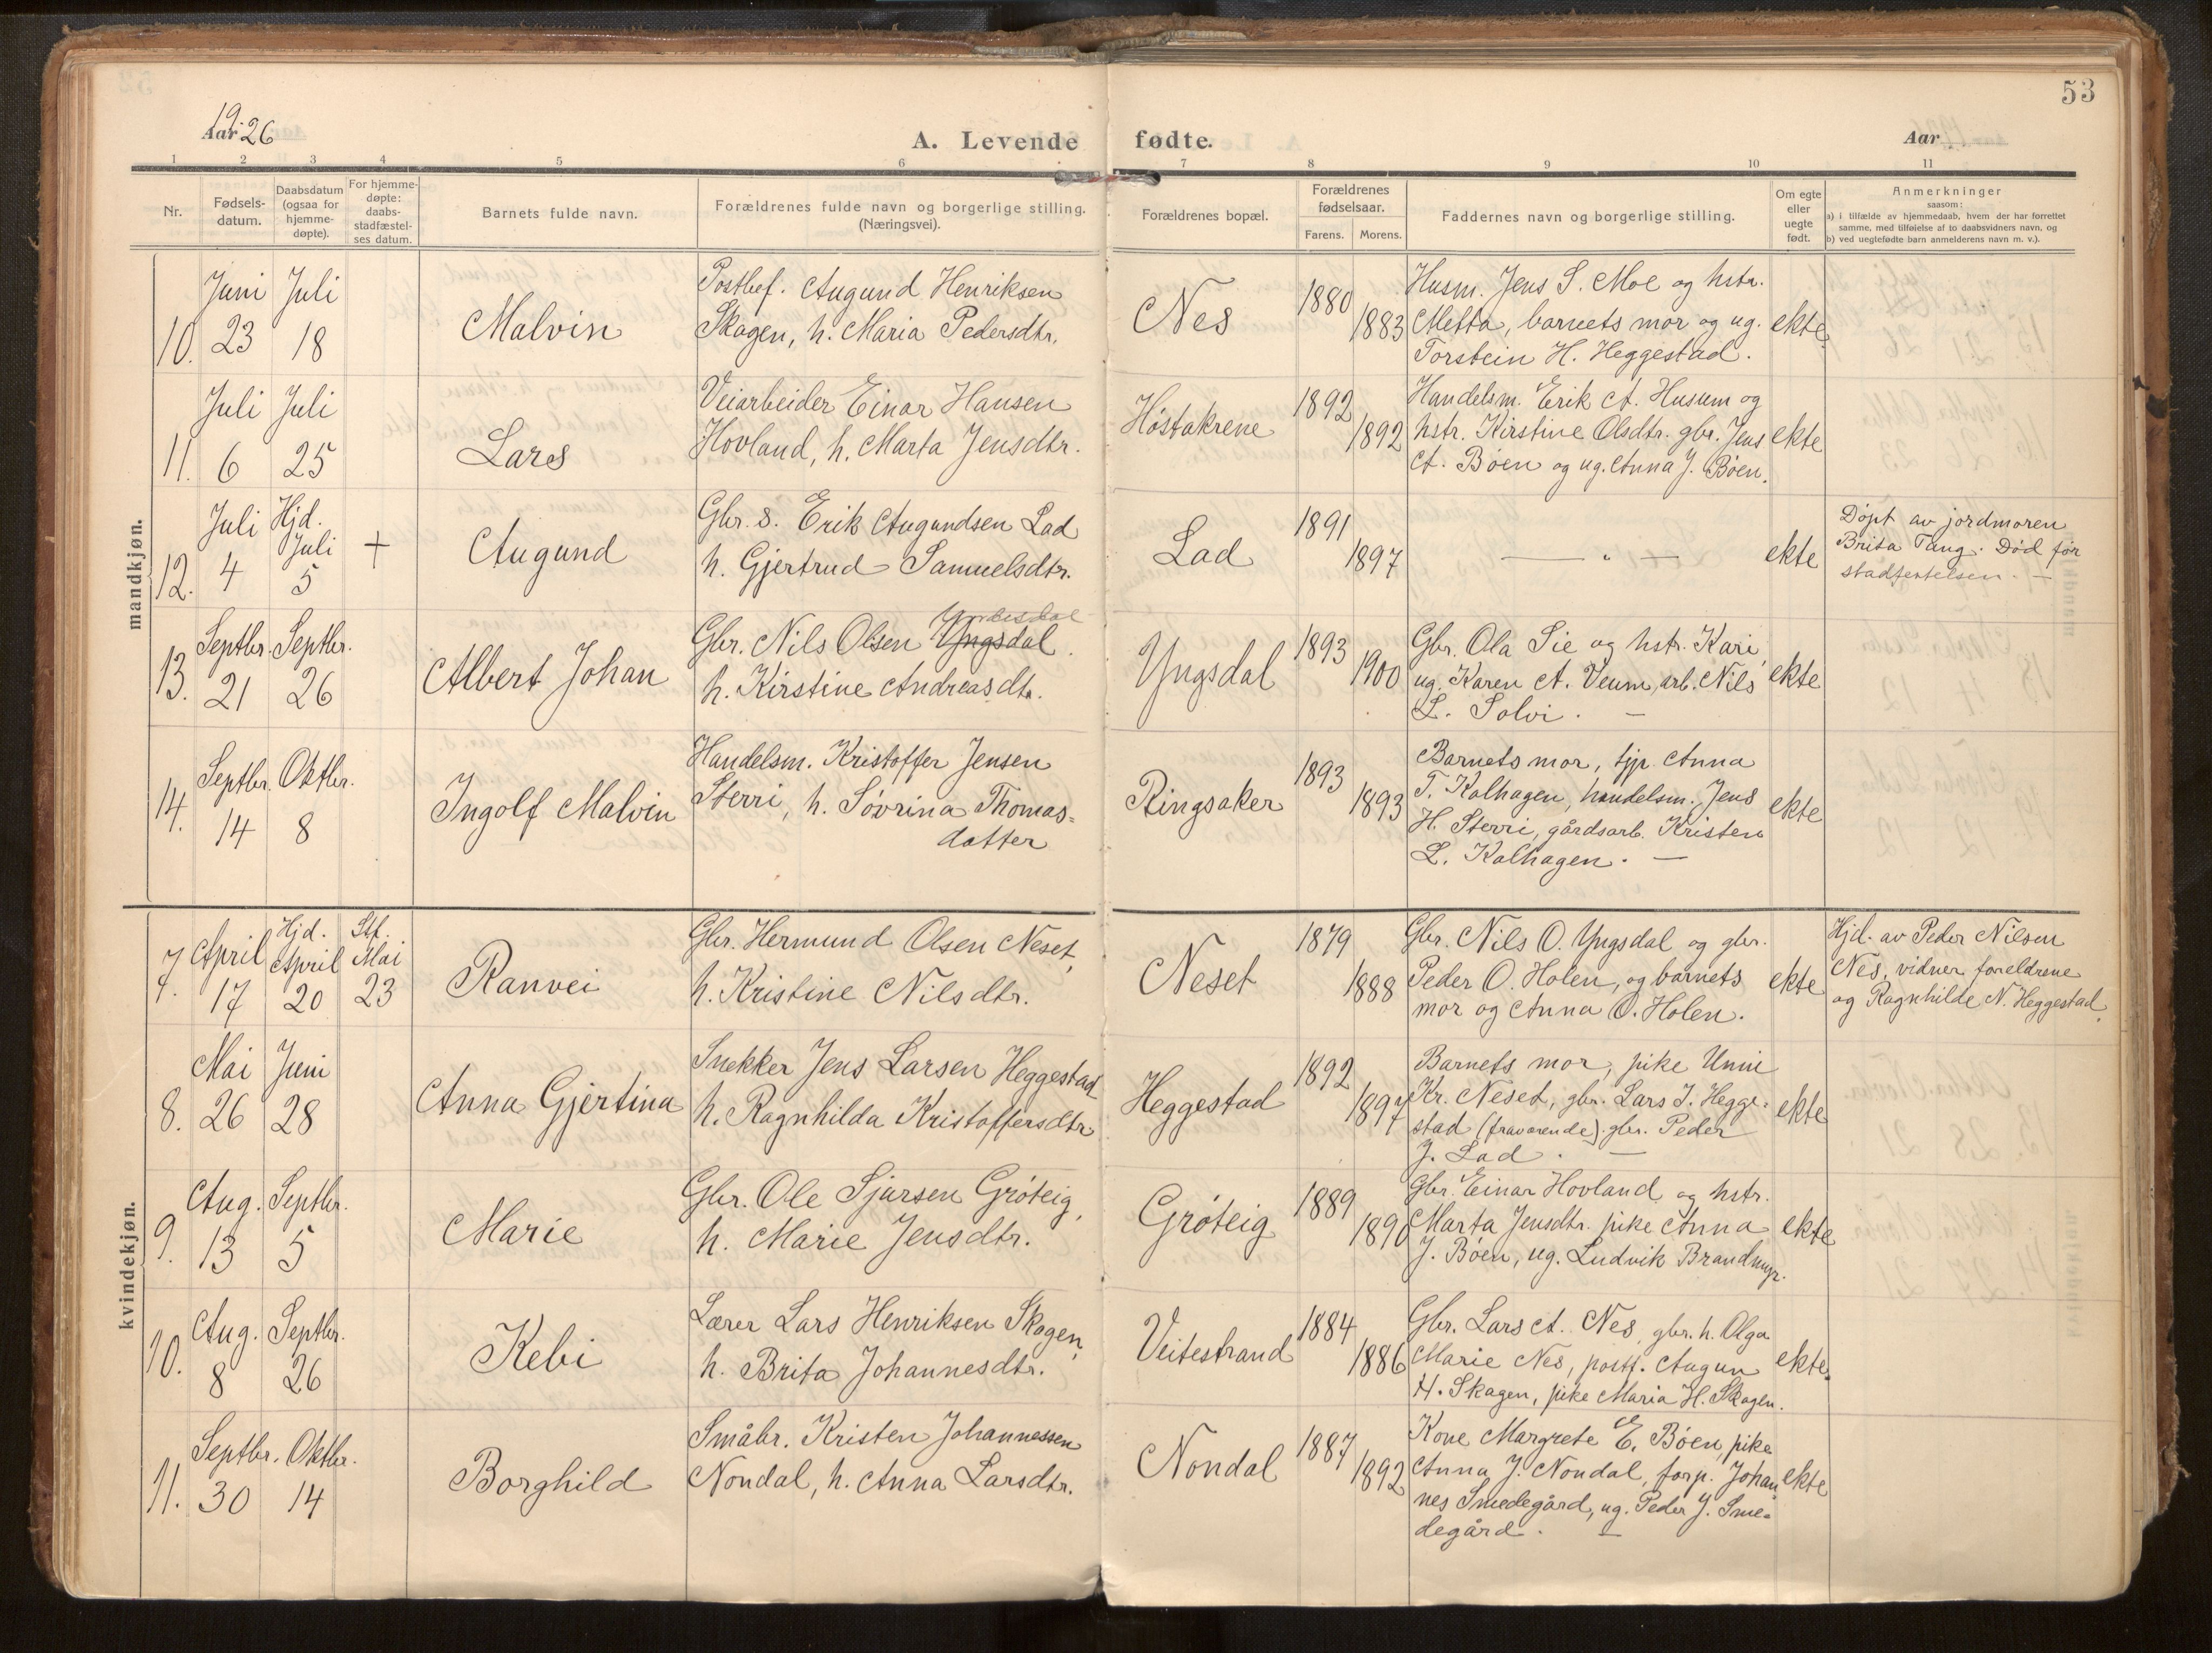 53
Aar 1926
A. Levende fødte.
Aar
1 2 3 4 5 6 7 8 9 10 11
Nr.
Fødsels-
datum.
Daabsdatum
(ogsaa for
hjemme-
døpte).
For hjemme-
døpte:
daabs-
stadfæstel-
ses datum.
Barnets fulde navn.
Forældrenes fulde navn og borgerlige stilling.
(Næringsvei).
Forældrenes bopæl.
Forældrenes
fødselsaar.
Farens. Morens.
Faddernes navn og borgerlige stilling.
Om egte
eller
uegte
født.
Anmerkninger
saasom:
a) i tilfælde av hjemmedaab, hvem der har forrettet
samme, med tilføielse af to daabsvidners navn, og
b) ved uegtefødte barn anmelderens navn m. v.).
mandkjøn.
10.
Juni
23
Juli
18
Malvin
Postbef. Augund Henriksen
Skagen, h. Maria Pedersdtr.
Nes
1880
1883
Husm. Jens S. Moe og hstr.
Metta, barnets mor og ug.
Torstein H. Heggestad.
ekte
11.
Juli
6
Juli
25
Lars
Veiarbeider Einar Hansen
Hovland, h. Marta Jensdtr.
Høstakrene
1892
1892
Handelsm. Erik A. Husum og
hstr. Kirstine Olsdtr. gbr. Jens
A. Bøen og ug. Anna J. Bøen.
ekte
12.
Juli
4
Hjd.
Juli
5
+
Augund
Gbr. s. Erik Augundsen Lad
h. Gjertrud Samuelsdtr.
Lad
1891
1897
— " —
ekte
Døpt av jordmoren
Brita Tang. Død før
stadfestelsen. —
13.
Septbr.
21
Septbr.
26
Albert Johan
Yndesdal
Gbr. Nils Olsen Yngsdal.
h. Kirstine Andreasdtr.
Yngsdal
1893
1900
Gbr. Ola Sie og hstr. Kari,
ug. Karen A. Veum, arb. Nils
L. Solvi. —
ekte
14.
Septbr.
14
Oktbr.
8
Ingolf Malvin
Handelsm. Kristoffer Jensen
Sterri, h. Søvrina Thomas=
datter
Ringsaker
1893
1893
Barnets mor, tjp. Anna
T. Kalhagen, handelsm. Jens
H. Sterri, gårdsarb. Kristen
L. Kalhagen. —
ekte
kvindekjøn.
7.
April
17
Hjd.
April
20
Stf.
Mai
23
Ranvei
Gbr. Hermund Olsen Neset,
h. Kristine Nilsdtr.
Neset
1879
1888
Gbr. Nils O. Yngsdal og gbr.
Peder O. Holen, og barnets
mor og Anna O. Holen.
ekte
Hjd. av Peder Nilsen
Nes, vidner foreldrene
og Ragnhilde N. Heggestad.
8.
Mai
26
Juni
28
Anna Gjertina
Snekker Jens Larsen Heggestad
h. Ragnhilda Kristoffersdtr
Heggestad
1892
1897
Barnets mor, pike Unni
Kr. Neset, gbr. Lars J. Hegge-
stad (fraværende) gbr. Peder
J. Lad. —
ekte
9.
Aug.
13
Septbr.
5
Marie
Gbr. Ole Sjursen Grøteig,
h. Marie Jensdtr.
Grøteig
1889
1890
Gbr. Einar Hovland og hstr.
Marta Jensdtr. pike Anna
J. Bøen, ug. Ludvik Brandmyr.
ekte
10.
Aug.
8
Septbr.
26
Kebi
Lærer Lars Henriksen Skagen,
h. Brita Johannesdtr.
Veitestrand
1884
1886
Gbr. Lars A. Nes, gbr. h. Olga
Marie Nes, postf. Augun
H. Skagen, pike Maria H. Skagen.
ekte.
11.
Septbr.
30
Oktbr.
14
Borghild
Småbr. Kristen Johannessen
Nondal, h. Anna Larsdtr.
Nondal
1887
1892
Kone Margrete E. Bøen, pike
Anna J. Nondal, forp. Johan
nes Smedegård, ug. Peder J. Sme-
degård. —
ekte